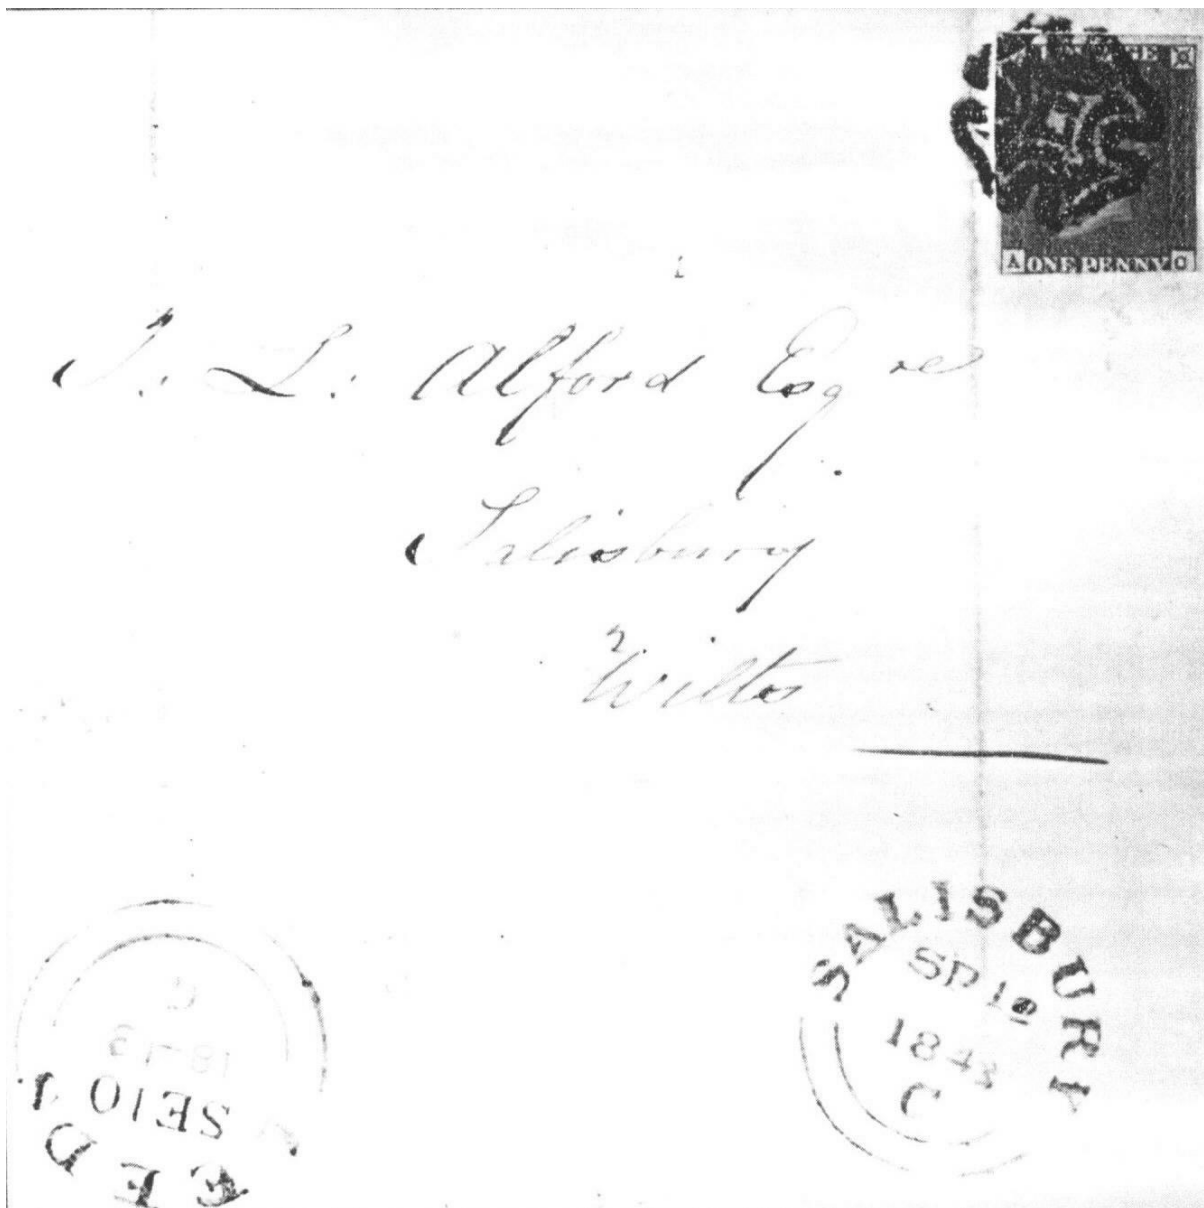 A ONE PENNY C
J. L. Alford Esqre
Salisbury
Wilts
SALISBURY
SP 12
1843
C
SE 10